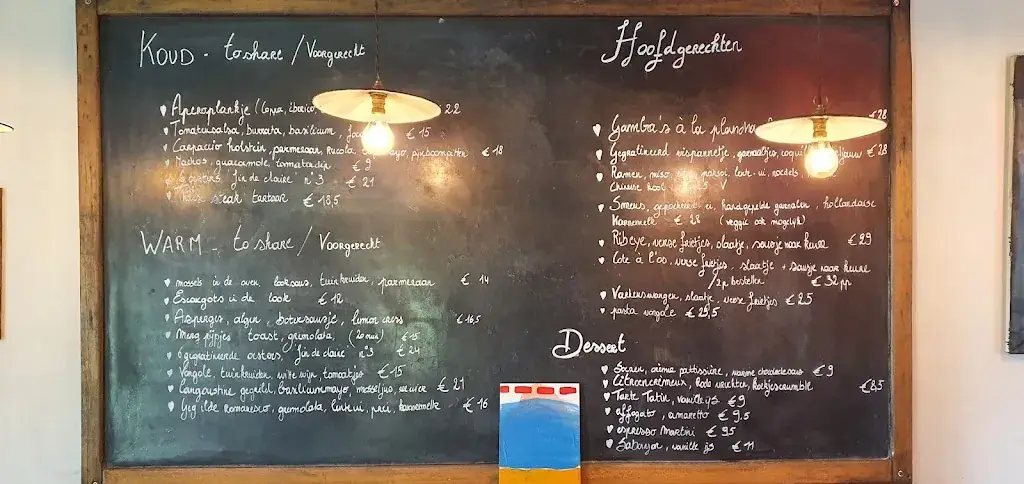 KOUD - to share / Voorgerecht
Aperoplankje (coppa, iberico, 22
Tomatensalsa, burrata, basilicum, € 15
Carpaccio holstein, parmezaan, rucola, mayo, pijnboompitten € 18
Nachos, guacamole, tomatensalsa € 9
6 oesters, fin de claire n°3 € 21
steak tartaar € 18,5
WARM - to share / Voorgerecht
mossels in de oven, looksaus, tuinkruiden, parmezaan € 14
Escargots in de look € 12
Asperges, algen, botersausje, lemon cress € 16,5
Merg pijpjes, toast, gremolata, (20 min) € 15
6 gegratineerde oesters, fin de claire n°3 € 24
Vongole, tuinkruiden, witte wijn, tomaatjes € 15
Langoustine gegrild, basilicummayo, € 21
Gegrilde romanesco, gremolata, lente ui, prei, karnemelk € 16
Hoofdgerechten
Gamba's à la plancha € 28
Gegratineerd vispannetje, garnaaltjes, € 28
Ramen, miso, lente-ui, noedels,
chinese kool V
Smeus, gepocheerd ei, handgepelde garnalen, hollandaise
karnemelk - € 28 (veggie ook mogelijk)
Ribeye, verse frietjes, slaatje, sausje naar keuze € 29
Cote à l'os, verse frietjes, slaatje + sausje naar keuze
/2p bestellen € 32 pp
Varkenswangen, slaatje, verse frietjes € 25
pasta vongole € 25,5
Dessert
crème patissière, warme chocoladesaus € 9
Citroencrèmeux, rode vruchten, koekjescrumble € 8,5
Tarte Tatin, vanille ijs € 9
affogato, amaretto € 9,5
espresso Martini € 9,5
Sabayon, vanille ijs € 11